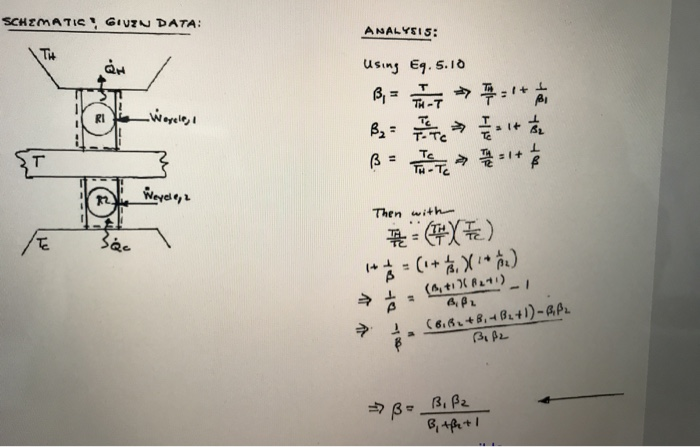 SCHEMATIC & GIVEN DATA:
TH
Q̇H
R1
Ẇcycle,1
T
R2
Ẇcycle,2
TC
Q̇C
ANALYSIS:
Using Eq. 5.10
β1 = T / (TH - T) ⇒ TH/T = 1 + 1/β1
β2 = TC / (T - TC) ⇒ T/TC = 1 + 1/β2
β = TC / (TH - TC) ⇒ TH/TC = 1 + 1/β
Then with
TH/TC = (TH/T)(T/TC)
1 + 1/β = (1 + 1/β1)(1 + 1/β2)
⇒ 1/β = (β1+1)(β2+1) / β1β2 - 1
⇒ 1/β = ((β1β2 + β1 + β2 + 1) - β1β2) / β1β2
⇒ β = β1β2 / (β1 + β2 + 1)